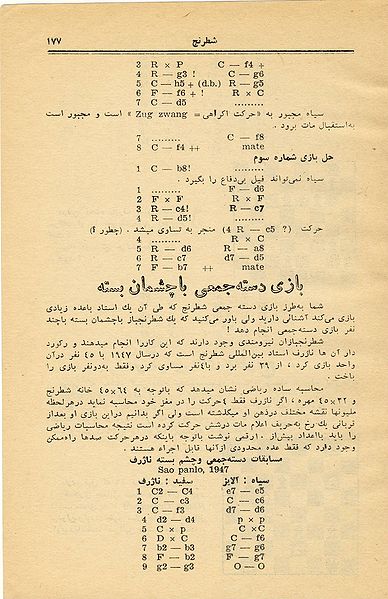 شطرنج ۱۷۷
3 R × P C — f4 +
4 R — g3 ! C — g6
5 C — h5 + (d.b.) R — g5
6 F — f6 + ! R × C
7 C — d5 .........
سیاه مجبور به «حرکت اکراهی = Zug zwang » است و مجبور است
به‌استقبال مات برود .
7 ........ C — f8
8 C — f4 ++ mate
حل بازی شماره سوم
1 C — b8! ........
سیاه نمی‌تواند فیل بی‌دفاع را بگیرد .
1 ......... F — d6
2 F × F R × F
3 R — c4! R — c7
4 R — d5! ........
حرکت (? 4 R — c5) منجر به تساوی میشد . (چطور ؟)
4 ........ R × C
5 R — d6 R — a8
6 R — c7 d7 — d5
7 F — b7 ++ mate
بازی دسته‌جمعی باچشمان بسته
شما به‌طرز بازی دسته جمعی شطرنج که طی آن یك استاد باعده زیادی
بازی می‌کند آشنائی دارید ولی باور می‌کنید که یك شطرنجباز باچشمان بسته باچند
نفر بازی دسته‌جمعی انجام دهد !
شطرنجبازان نیرومندی وجود دارند که این کاررا انجام میدهند و رکورد
دار آن ها ناژرف استاد بین‌المللی شطرنج است که درسال ۱۹۴۷ با ۴۵ نفر درآن
واحد بازی کرد ، از ۳۹ نفر برد و با۴نفر مساوی کرد وفقط به‌دونفر بازی را
باخت .
محاسبه ساده ریاضی نشان میدهد که باتوجه به ۶۴×۴۵ خانه شطرنج
و ۳۲×۴۵ مهره ، اگر ناژرف فقط ۴حرکت را در مغز خود محاسبه نماید درهرلحظه
ملیونها نقشه مختلف درذهن او میگذشته است ولی اگر بدانیم دراین بازی او بعداز
قربانی یك رخ به‌حریف اعلام مات درشش حرکت کرده است نتیجه محاسبات ریاضی
را باید بااعداد بیش‌از ۱۰رقمی نوشت باتوجه باینکه درهرحرکت صدها راه‌ممکن
وجود دارد که فقط عده محدودی ازآنها قابل اجراء هستند .
مسابقات دسته‌جمعی وچشم بسته ناژرف
Sao panlo, 1947
سفید : ناژرف سیاه : آلایز
1 C2 — C4 e7 — c5
2 C — c3 C — c6
3 C — f3 d7 — d6
4 d2 — d4 p × p
5 C × p C × C
6 D × C C — f6
7 b2 — b3 g7 — g6
8 F — b2 F — g7
9 g2 — g3 O — O